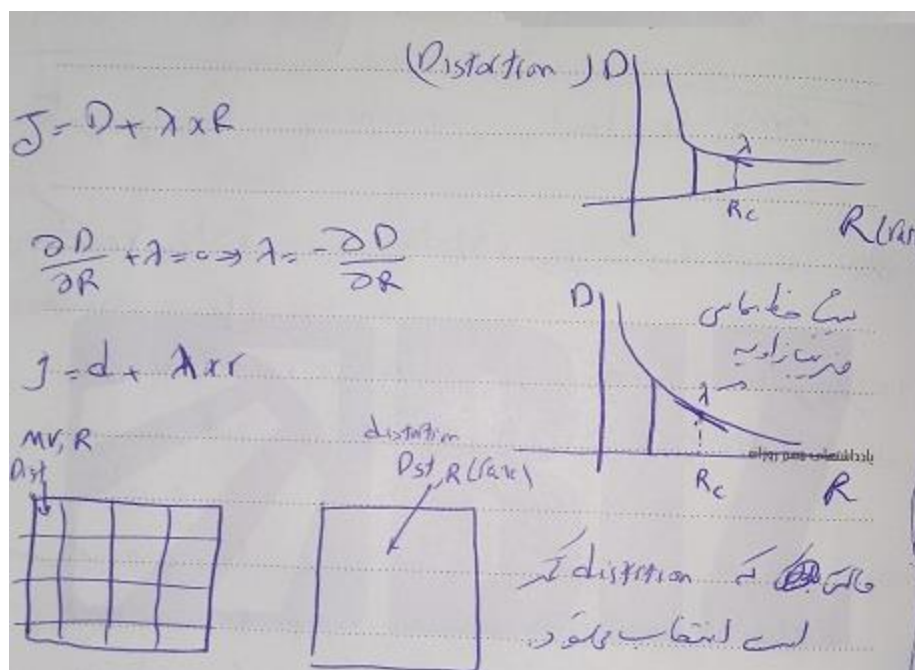 (Distortion) D
J = D + λ x R
λ
Rc
R (rat
∂D/∂R + λ = 0 ⇒ λ = -∂D/∂R
D
شیب خط مماس
ضریب زاویه
λ
J = d + λ x r
Rc
R
MV, R
Dist
distortion
Dst, R (rate)
حالتی که distortion کمتر
است انتخاب می‌شود.